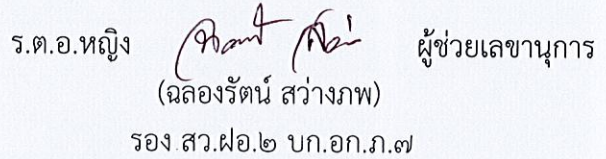 ร.ต.อ.หญิง ผู้ช่วยเลขานุการ
(ฉลองรัตน์ สว่างภพ)
รอง สว.ฝอ.๒ บก.อก.ภ.๗